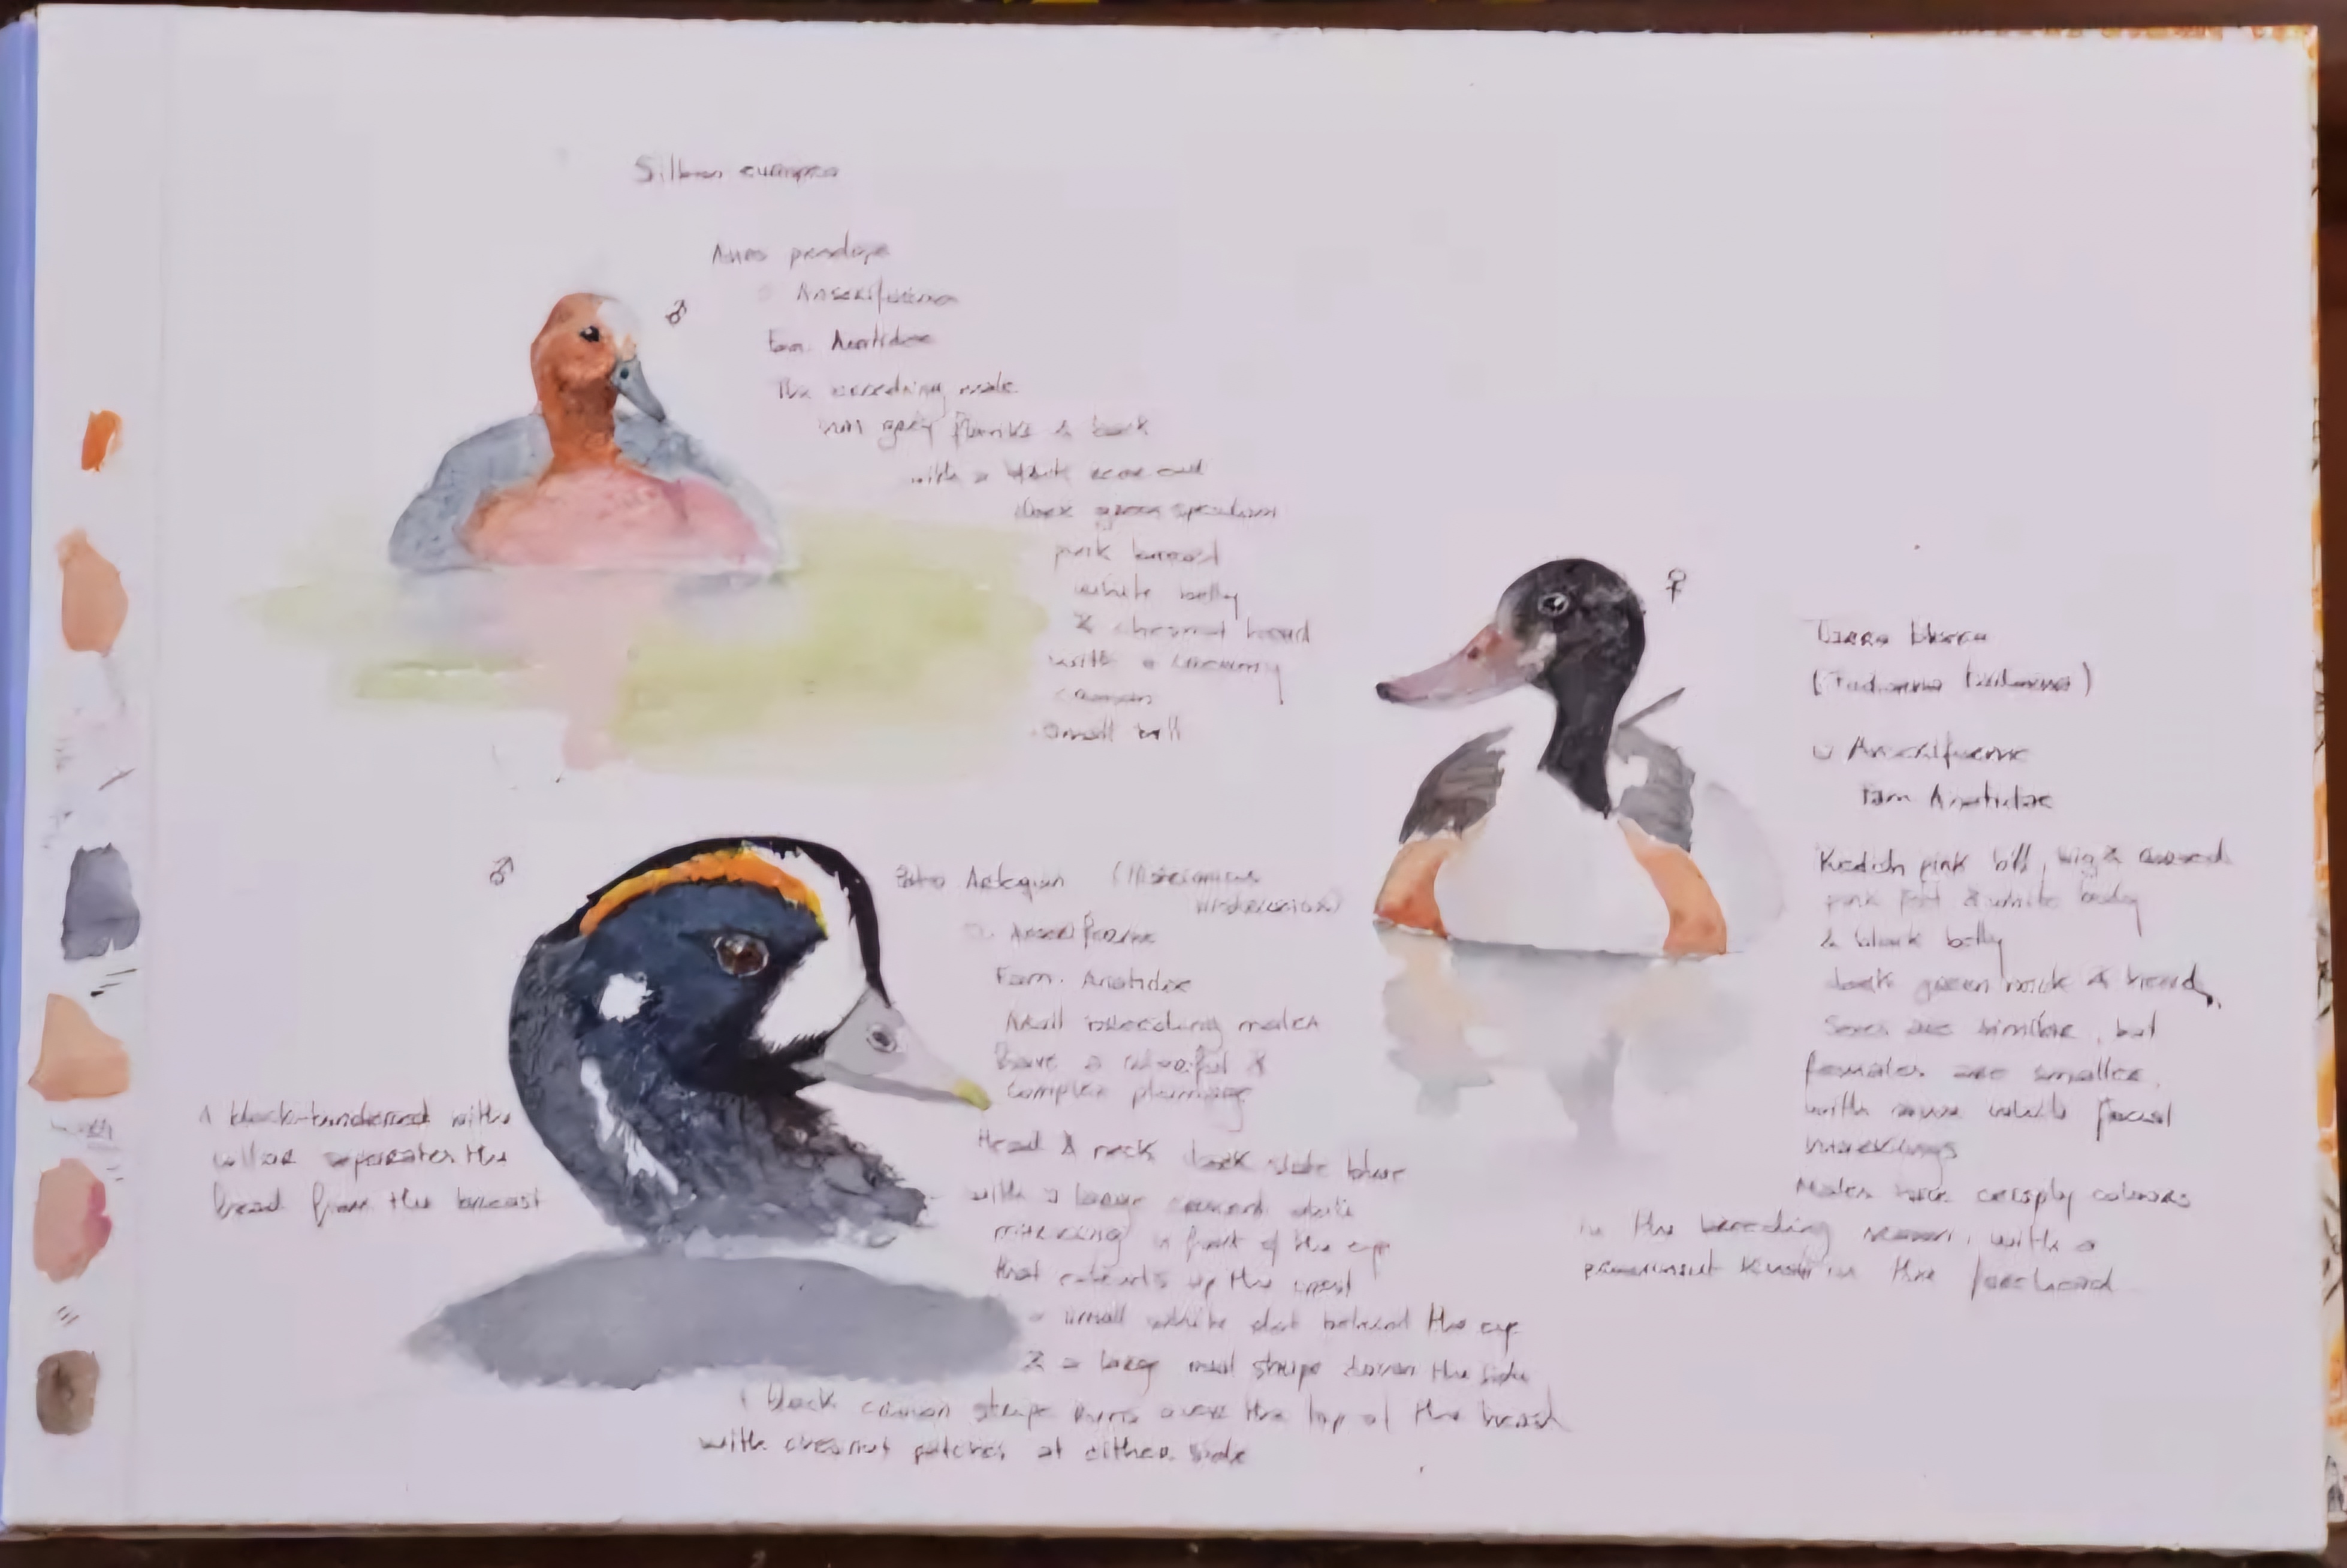 Silbon europeo
♂
Anas penelope
Anseriforme
Fam. Anatidae
The breeding male
grey flanks & back
with a
dark green speculum
pink breast
white belly
& chesnut head
with a creamy
small bill
♀
(Tadorna tadorna)
Anseriforme
Fam Anatidae
Redish pink bill,
pink feet & white body
& black belly
dark green neck & head,
Sexes are similar, but
females are smaller,
with more white facial
markings
Males
in the breeding season, with a
prominent knob in the forehead
♂
Pato Arlequin (Histrionicus
histrionicus)
Anseriforme
Fam. Anatidae
breeding males
have a colorful &
complex plumage
Head & neck dark slate blue
with a large cresent white
marking in front of the eye
that extends up the crest
a small white dot behind the eye
& a large oval stripe down the side
black crown stripe runs over the top of the head
with chesnut patches at either side
A black-bordered white
collar separates the
head from the breast